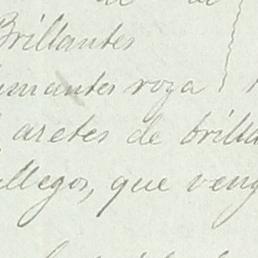 de de
Brillantes
amantes roza
aretes de brilla
llegos, que veng